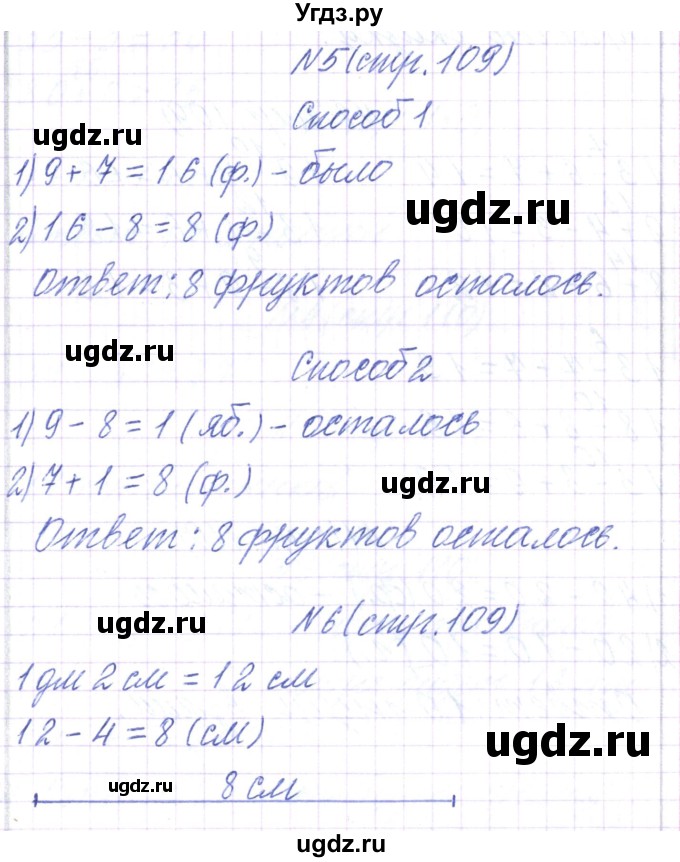 Угдз.ру
N5(стр.109)
Способ 1
ugdz.ru
1) 9 + 7 = 16 (ф.) - было
ugdz.ru
2) 16 - 8 = 8 (ф.)
Ответ: 8 фруктов осталось.
ugdz.ru
Способ 2
1) 9 - 8 = 1 (яб.) - осталось
2) 7 + 1 = 8 (ф.)
ugdz.ru
Ответ: 8 фруктов осталось.
ugdz.ru
N6(стр.109)
1 дм 2 см = 12 см
12 - 4 = 8 (см)
ugdz.ru
ugdz.ru
8 см
ugdz.ru